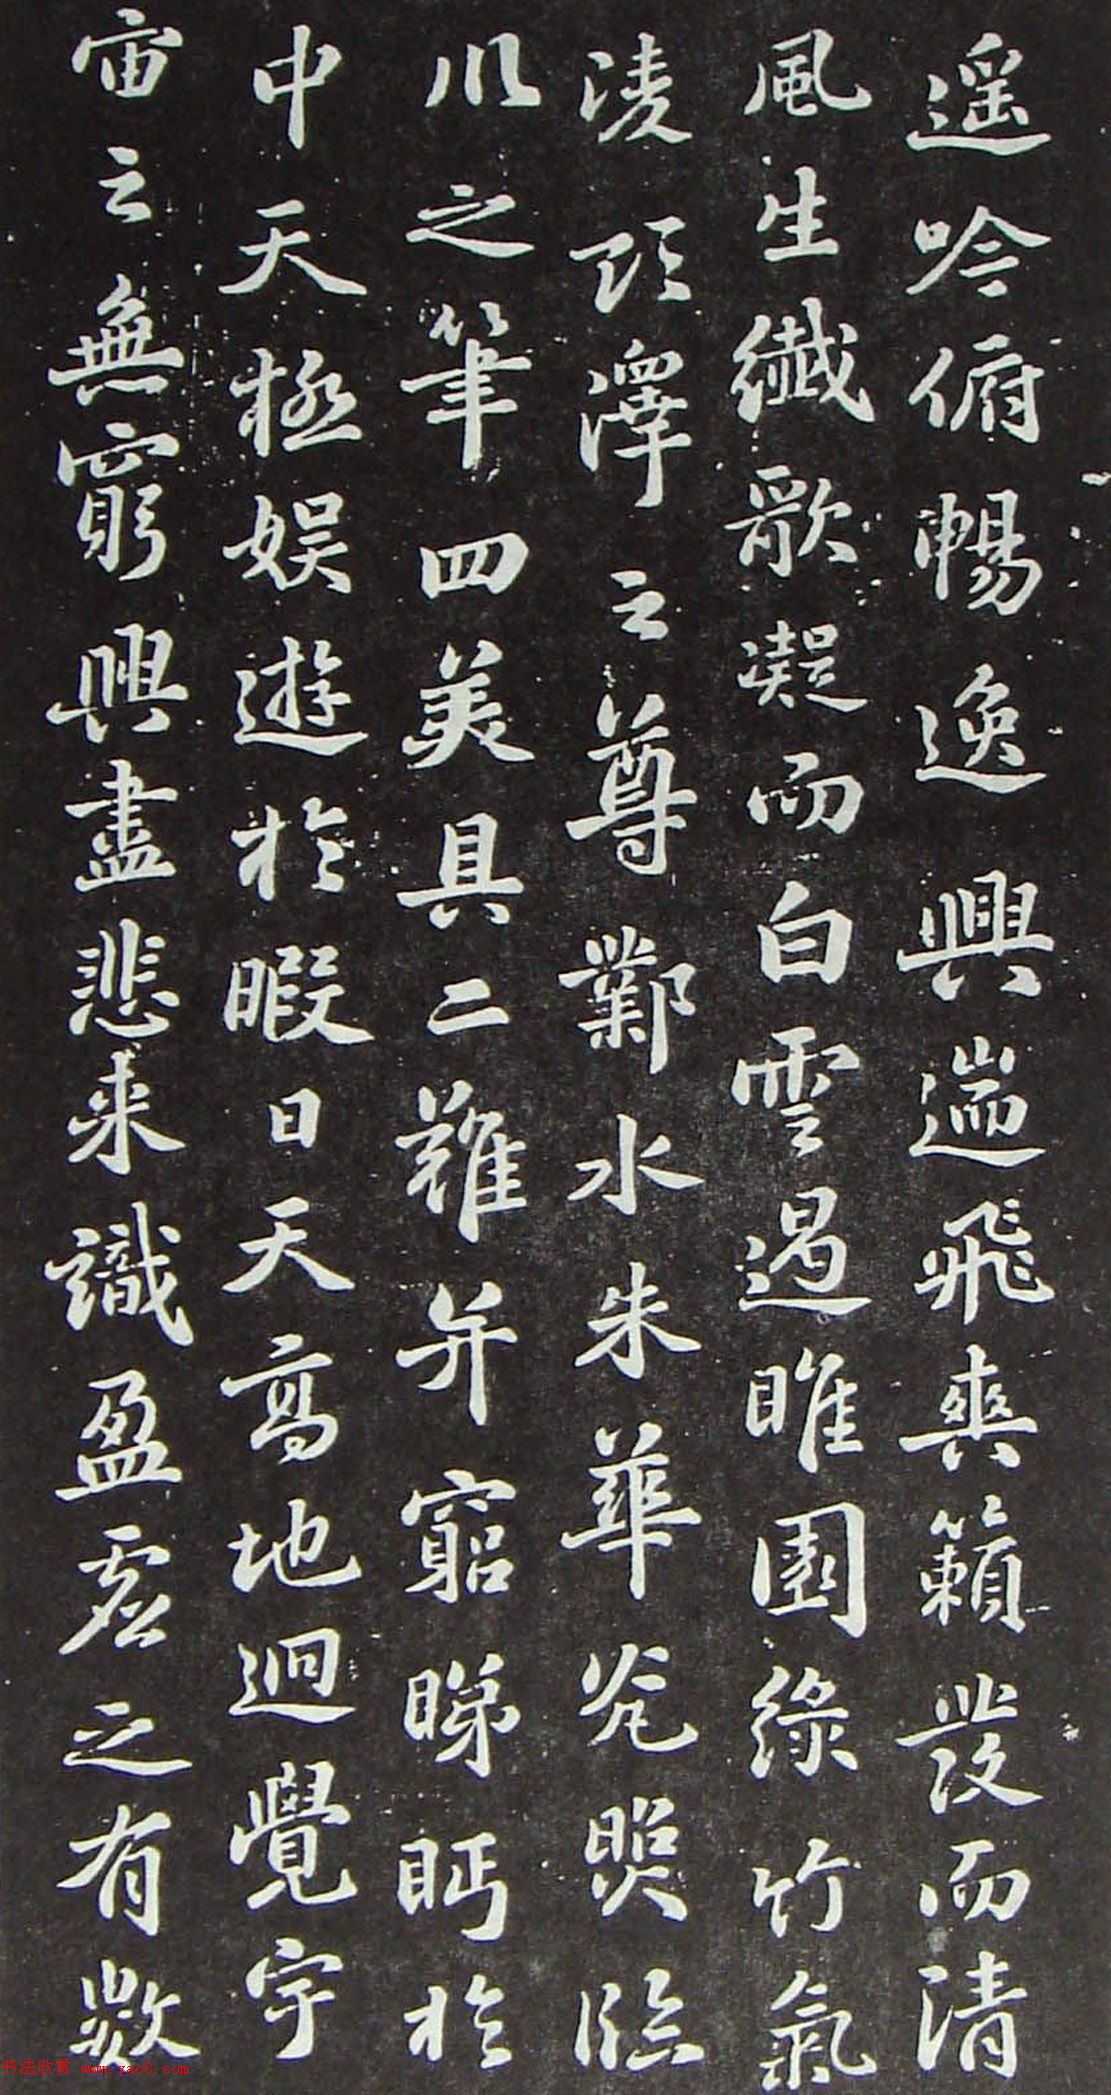 遥吟俯暢逸興遄飛爽籟發而清
風生纖歌凝而白雲遏睢園綠竹氣
凌彭澤之尊鄴水朱華光照臨
川之筆四美具二難并窮睇眄於
中天極娛遊於暇日天高地迥覺宇
宙之無窮興盡悲來識盈虛之有數
书法欣赏 www.yac8.com